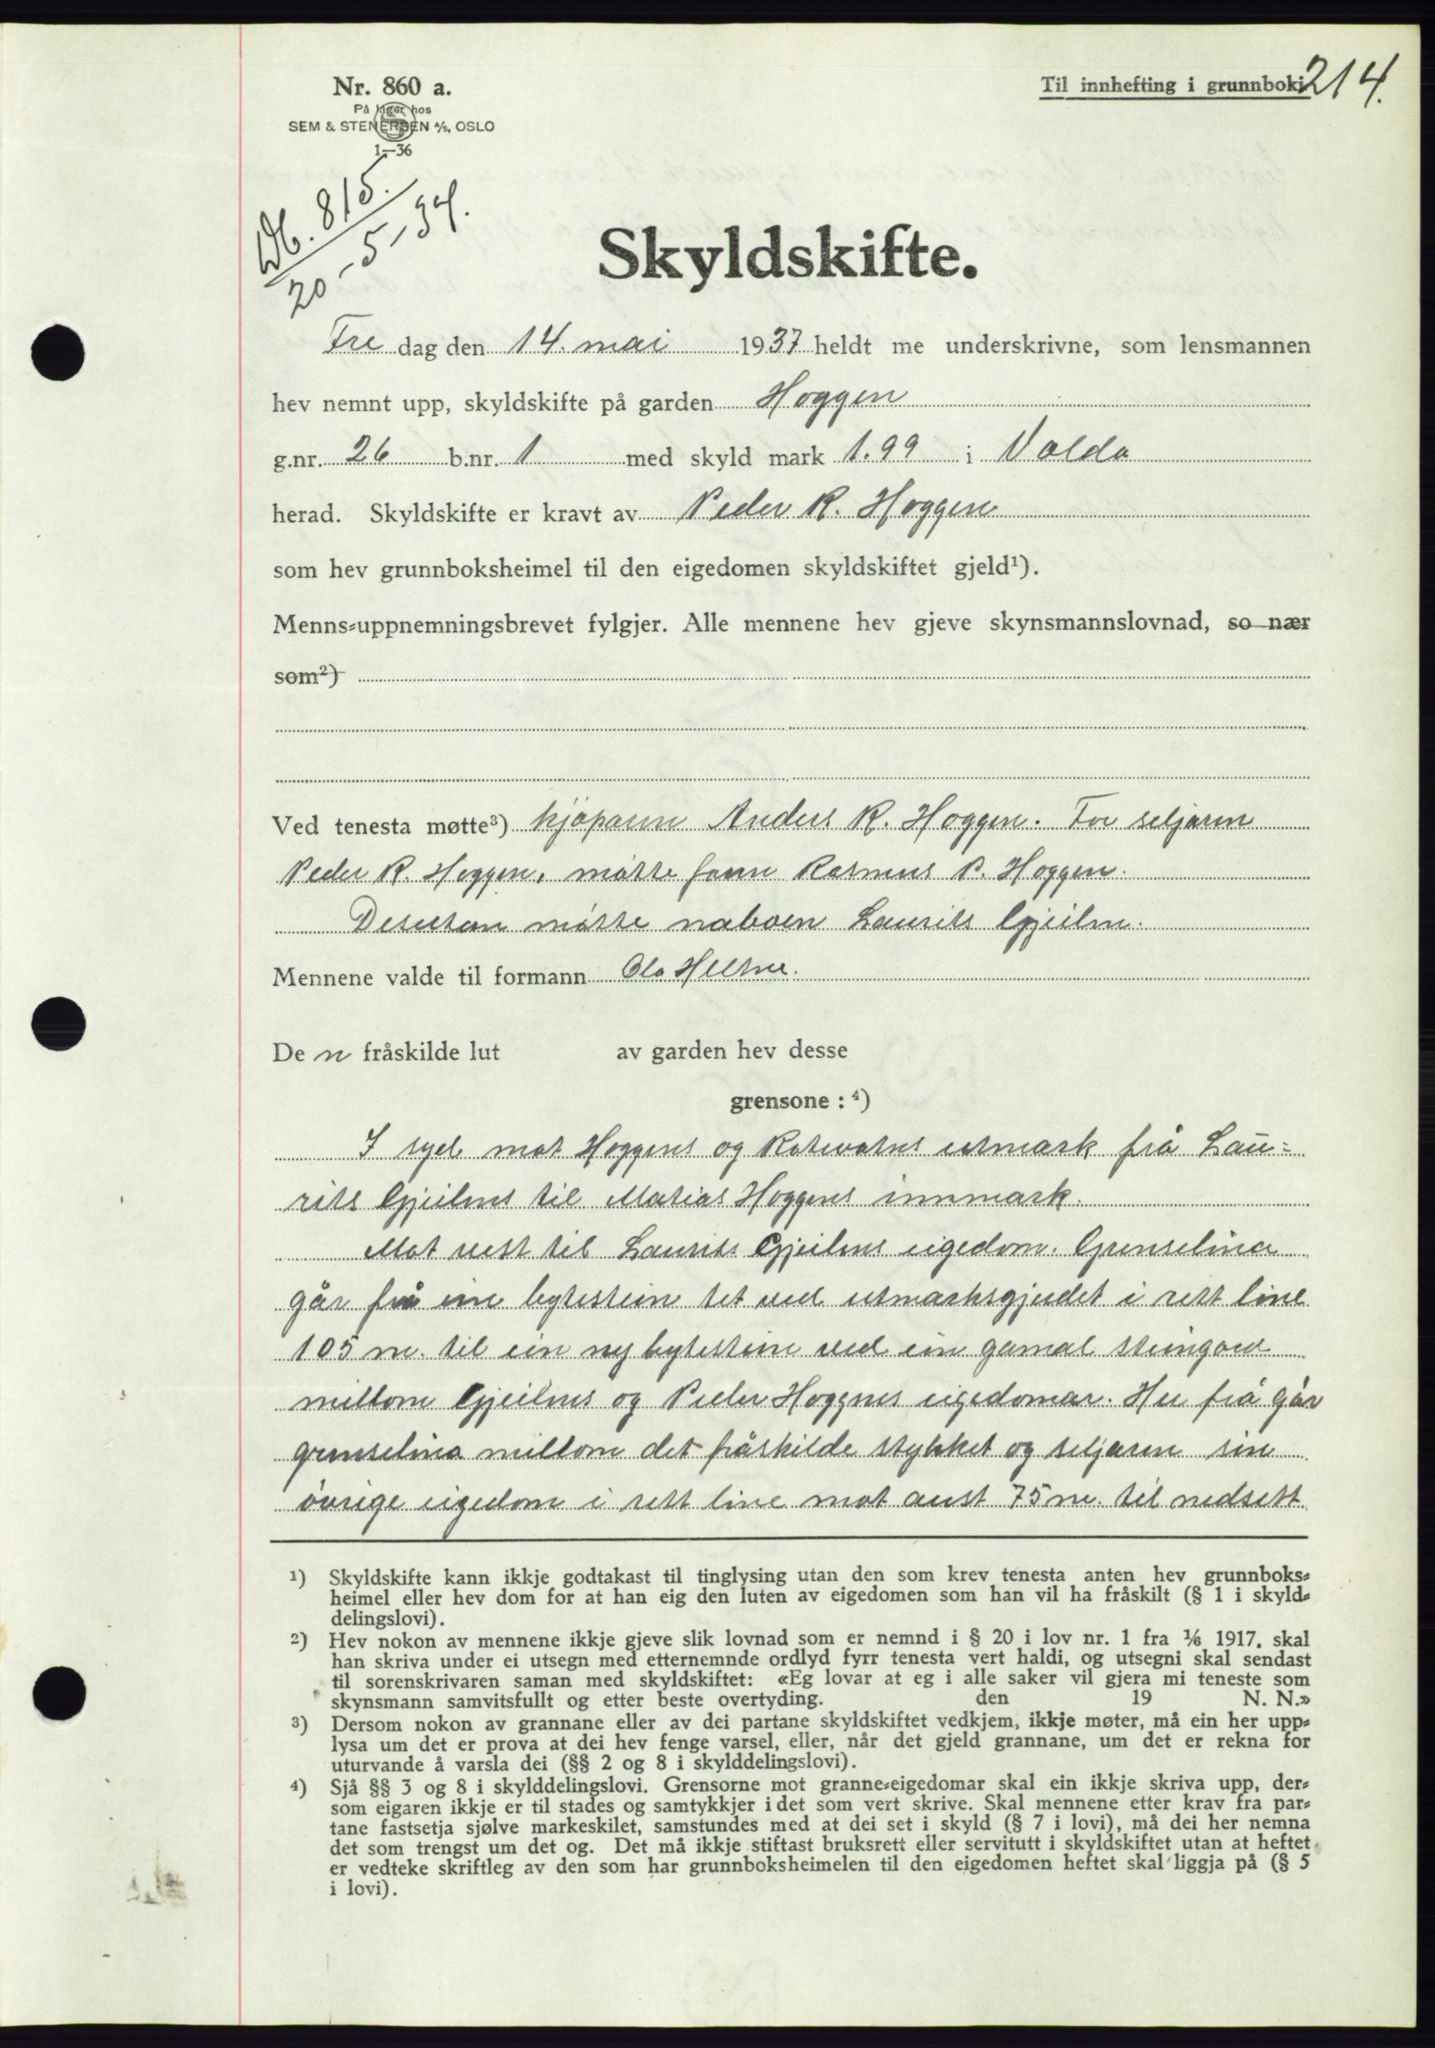 Nr. 860 a.
På lager hos
SEM & STENERSEN A/S, OSLO
1—36
Til innhefting i grunnboki
214.
Db. 815.
20-5-37.
Skyldskifte.
Fre dag den 14. mai 1937 heldt me underskrivne, som lensmannen
hev nemnt upp, skyldskifte på garden Hoggen
g.nr. 26 b.nr. 1 med skyld mark 1.99 i Volda
herad. Skyldskifte er kravt av Peder R. Hoggen
som hev grunnboksheimel til den eigedomen skyldskiftet gjeld¹).
Menns-uppnemningsbrevet fylgjer. Alle mennene hev gjeve skynsmannslovnad, so nær
som²)
Ved tenesta møtte³) kjøparen Anders R. Hoggen. For seljaren
Peder R. Hoggen, møtte Rasmus P. Hoggen.
Desutan møtte naboen Laurits Gjeilen.
Mennene valde til formann Ola Heltne.
De n fråskilde lut av garden hev desse
grensone : ⁴)
I syd mot Hoggens og Rotevatns utmark frå Lau=
rits Gjeilens til Matias Hoggens innmark.
Mot vest til Laurits Gjeilens eigedom. Grenselina
går frå ein bytestein tet ved utmarksgjerdet i rett line
105 m. til ein ny bytestein ved ein gamal steingard
millom Gjeilens og Peder Hoggens eigedomar. Her frå går
grenselina millom det fråskilde stykket og seljaren sin
övrige eigedom i rett line mot aust 75 m. til nedsett
¹) Skyldskifte kann ikkje godtakast til tinglysing utan den som krev tenesta anten hev grunnboks-
heimel eller hev dom for at han eig den luten av eigedomen som han vil ha fråskilt (§ 1 i skyld-
delingslovi).
²) Hev nokon av mennene ikkje gjeve slik lovnad som er nemnd i § 20 i lov nr. 1 fra 1/6 1917, skal
han skriva under ei utsegn med etternemnde ordlyd fyrr tenesta vert haldi, og utsegni skal sendast
til sorenskrivaren saman med skyldskiftet: «Eg lovar at eg i alle saker vil gjera mi teneste som
skynsmann samvitsfullt og etter beste overtyding. den 19 N. N.»
³) Dersom nokon av grannane eller av dei partane skyldskiftet vedkjem, ikkje møter, må ein her upp-
lysa um det er prova at dei hev fenge varsel, eller, når det gjeld grannane, um det er rekna for
uturvande å varsla dei (§§ 2 og 8 i skylddelingslovi).
⁴) Sjå §§ 3 og 8 i skylddelingslovi. Grensorne mot granne-eigedomar skal ein ikkje skriva upp, der-
som eigaren ikkje er til stades og samtykkjer i det som vert skrive. Skal mennene etter krav fra par-
tane fastsetja sjølve markeskilet, samstundes med at dei set i skyld (§ 7 i lovi), må dei her nemna
det som trengst um det og. Det må ikkje stiftast bruksrett eller servitutt i skyldskiftet utan at heftet
er vedteke skriftleg av den som har grunnboksheimelen til den eigedomen heftet skal liggja på (§ 5
i lovi).